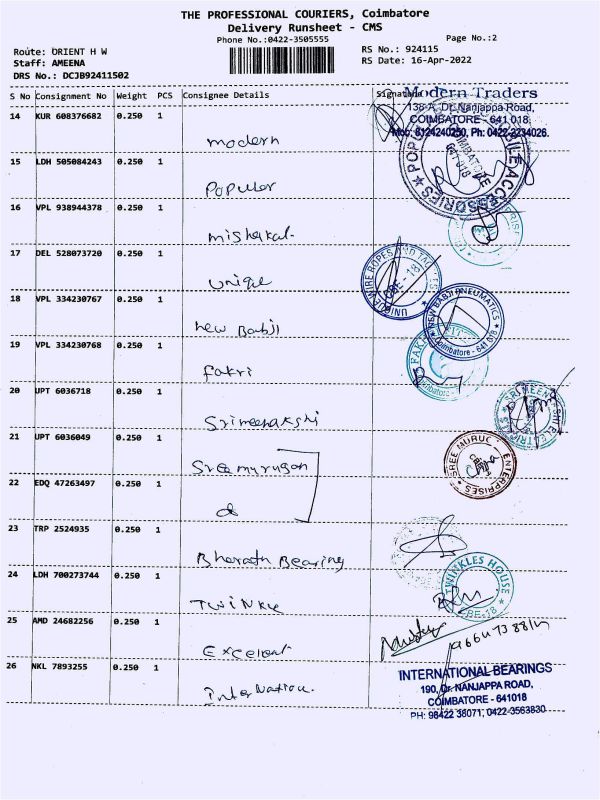 THE PROFESSIONAL COURIERS, Coimbatore
Delivery Runsheet - CMS
Phone No.:0422-3505555
Page No.:2
Route: ORIENT H W
RS No.: 924115
Staff: AMEENA
RS Date: 16-Apr-2022
DRS No.: DCJB92411502
S No Consignment No Weight PCS Consignee Details Signature
Modern Traders
138-A, Dr. Nanjappa Road,
COIMBATORE - 641 018.
Mob: 8124240250, Ph: 0422-2234026.
14 KUR 608376682 0.250 1
modern
15 LDH 505084243 0.250 1
Populer
POPULAR MOBILE ACCESSORIES
COIMBATORE
641 018
16 VPL 938944378 0.250 1
mishakal
17 DEL 528073720 0.250 1
unique
UNIQUE WIRE ROPES AND TACKLES
CBE - 18
18 VPL 334230767 0.250 1
new Babji
NEW BABJI PNEUMATICS
Coimbatore - 641 018
19 VPL 334230768 0.250 1
fakri
20 UPT 6036718 0.250 1
Srimeenakshi
21 UPT 6036049 0.250 1
Sreemurugan
SREE MURUG ENTERPRISES
22 EDQ 47263497 0.250 1
23 TRP 2524935 0.250 1
Bharath Bearing
24 LDH 700273744 0.250 1
Twinkle
TWINKLES HOUSE
CBE-18
25 AMD 24682256 0.250 1
Excelent
26 NKL 7893255 0.250 1
InterNation.
INTERNATIONAL BEARINGS
190, Dr. NANJAPPA ROAD,
COIMBATORE - 641018
PH: 98422 38071, 0422-3563830